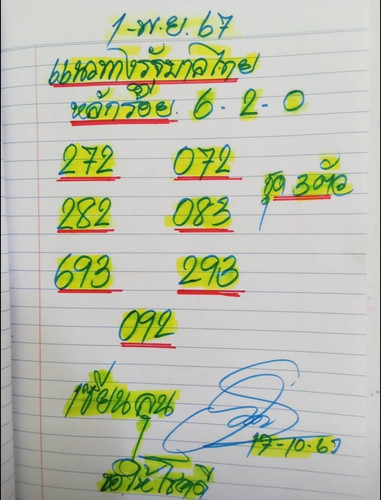 1-พ.ย. 67
แนวทางรัฐบาลไทย
หลักร้อย. 6-2-0
272 072
ชุด 3 ตัว
282 083
693 293
092
เซียนคุน
17-10-67
ขอให้โชคดี